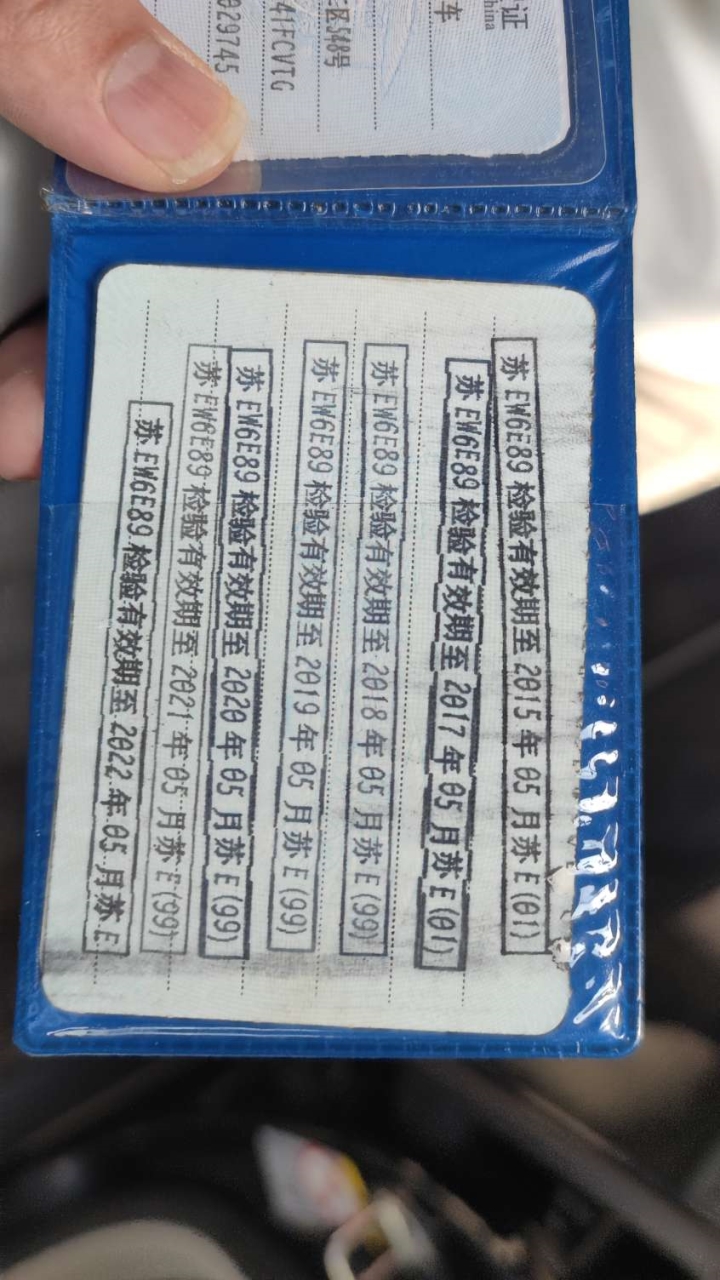 证
hina
车
区548号
41FCVTG
029745
苏EW6E89检验有效期至2015年05月苏E(01)
苏EW6E89检验有效期至2017年05月苏E(01)
苏EW6E89检验有效期至2018年05月苏E(99)
苏EW6E89检验有效期至2019年05月苏E(99)
苏EW6E89检验有效期至2020年05月苏E(99)
苏EW6E89检验有效期至2021年05月苏E(99)
苏EW6E89检验有效期至2022年05月苏E